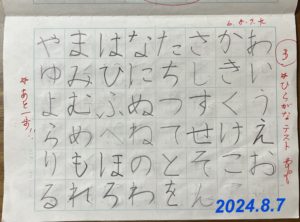 6.8.7.水
③
※ひらがなテスト
あいうえお
かきくけこ
さしすせそ
たちつてと
なにぬねの
はひふへほ
まみむめも
やゆよらり
るれろわをん
※あと一歩!!
2024.8.7